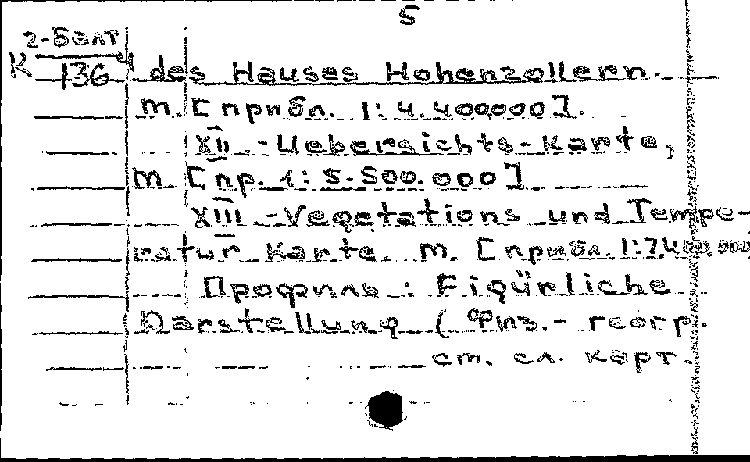 5
2-Балт
К 136 4 des Hauses Hohenzollern.
м. [прибл. 1:4.400000].
XII.-Uebersichts-Karte,
м. [пр. 1:5.500.000]
XIII.-Vegetations und Tempe-
ratur Karte м. [прибл. 1:7.400.000]
Профиль: Figürliche
Darstellung (Физ.-геогр.
см. сл. карт.